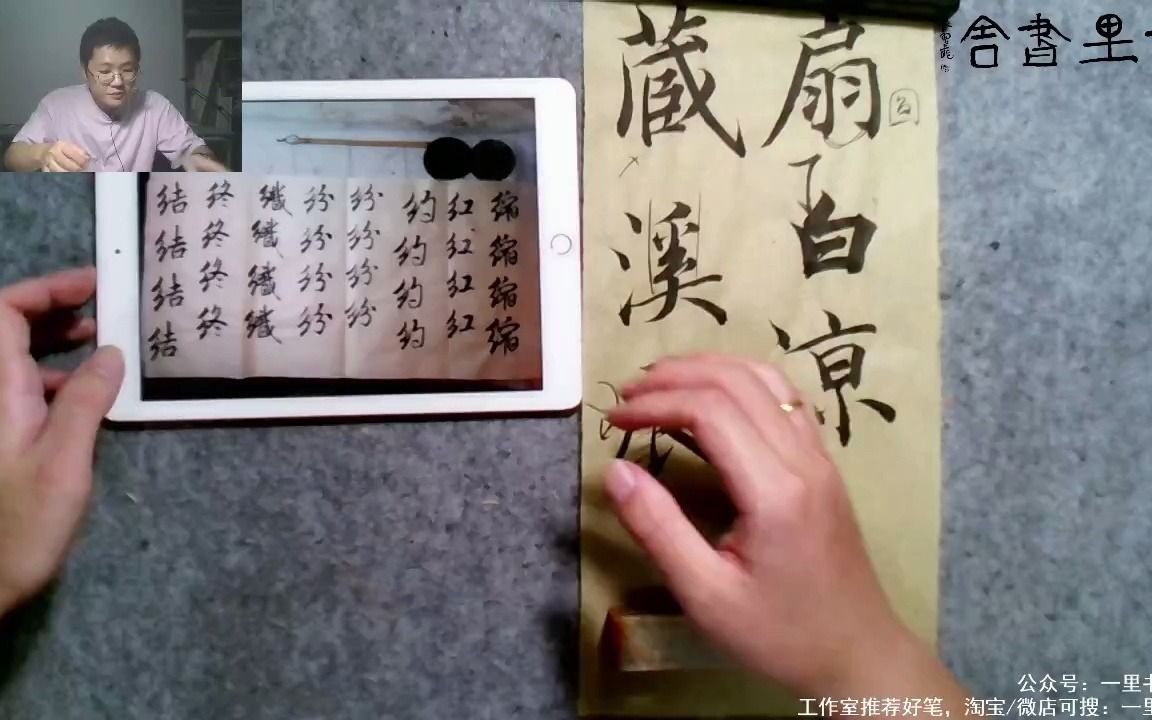 一里書舍
扇白凉
藏溪
缩缩缩缩
红红红红
约约约约
纷纷纷纷
纷纷纷纷
终终终终
结结结结
公众号：一里书
工作室推荐好笔，淘宝/微店可搜：一里